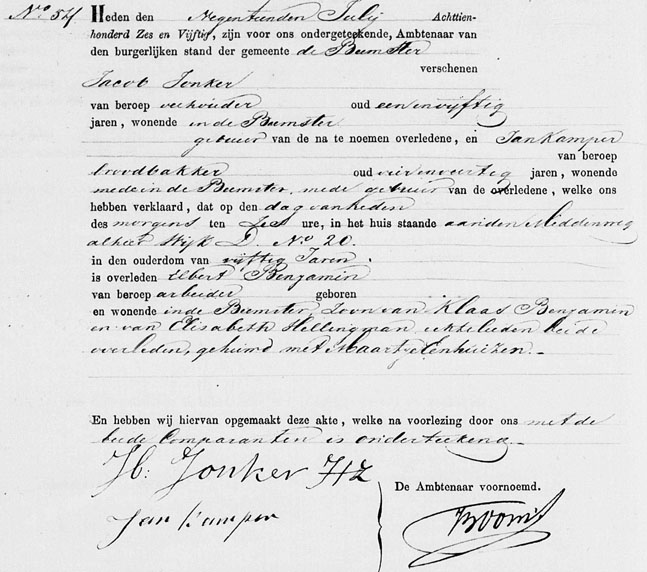 No. 54. Heden den Negentienden Julij Achttien-
honderd Zes en Vijftig, zijn voor ons ondergeteekende, Ambtenaar van
den burgerlijken stand der gemeente de Beemster
verschenen
Jacob Jonker
van beroep veehouder oud een en vijftig
jaren, wonende in de Beemster
gebuur van de na te noemen overledene, en Jan Kamper
van beroep
broodbakker oud vier en veertig jaren, wonende
mede in de Beemster, mede gebuur van de overledene, welke ons
hebben verklaard, dat op den dag van heden
des morgens ten Zes ure, in het huis staande aan den Middenweg
alhier Wijk D. No. 20.
in den ouderdom van vijftig Jaren.
is overleden Elbert Benjamin
van beroep arbeider geboren
en wonende in de Beemster, Zoon van Klaas Benjamin
en van Elisabeth Hellingman, echtelieden beide
overleden, gehuwd met Maartje Eenhuizen.
En hebben wij hiervan opgemaakt deze akte, welke na voorlezing door ons met de
beide Comparanten is onderteekend
Jb: Jonker Hz
De Ambtenaar voornoemd.
Jan Kamper